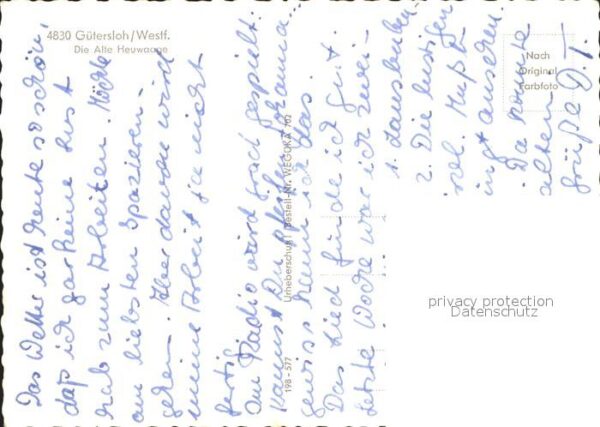 4830 Gütersloh/Westf.
Die Alte Heuwaage
Nach
Original
Farbfoto
Urheberschutz Bestell-Nr. WEGUKA 702
198 - 577
Das Wetter ist heute so schön,
daß ich gar keine Lust
hab zum Arbeiten. Möchte
am liebsten Spazieren-
gehen. Aber davon wird
meine Arbeit ja nicht
fertig.
Im Radio wird grad gespielt:
Kannst Du pfeifen Johanna...
gewiss kann ich das.
Das Lied finde ich gut.
Letzte Woche war ich zwei-
1. Lausbuben
2. Die lustigen
Muß
ansehen
Da konnte
Grüße
privacy protection
Datenschutz